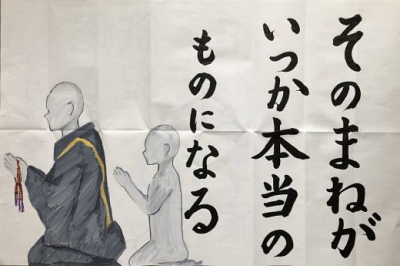 そのまねが
いつか本当の
ものになる